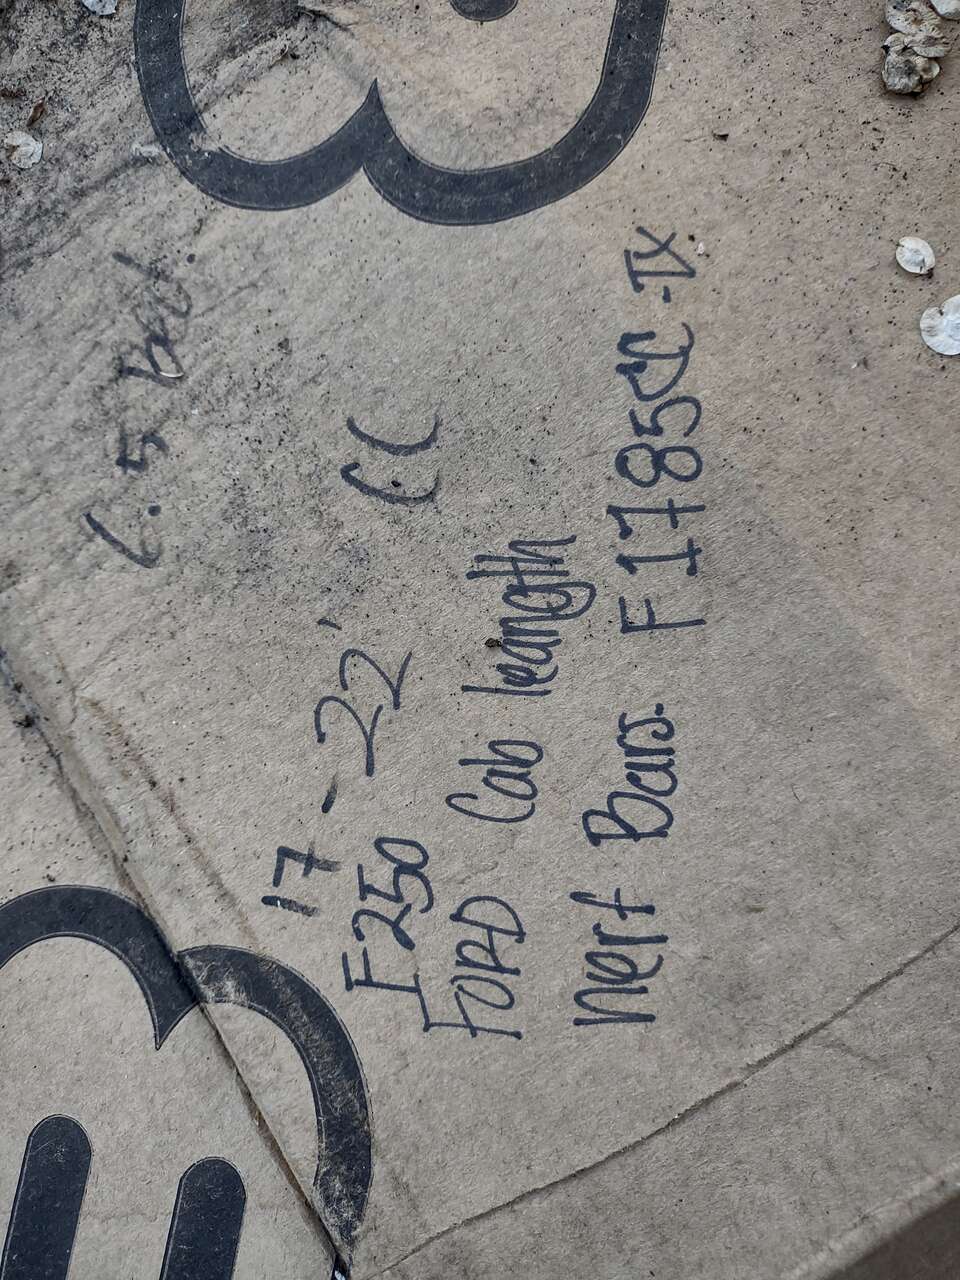 6.5 bed.
17-22' CC
F250
FORD Cab leangth
nerf Bars. F1785CC-TX